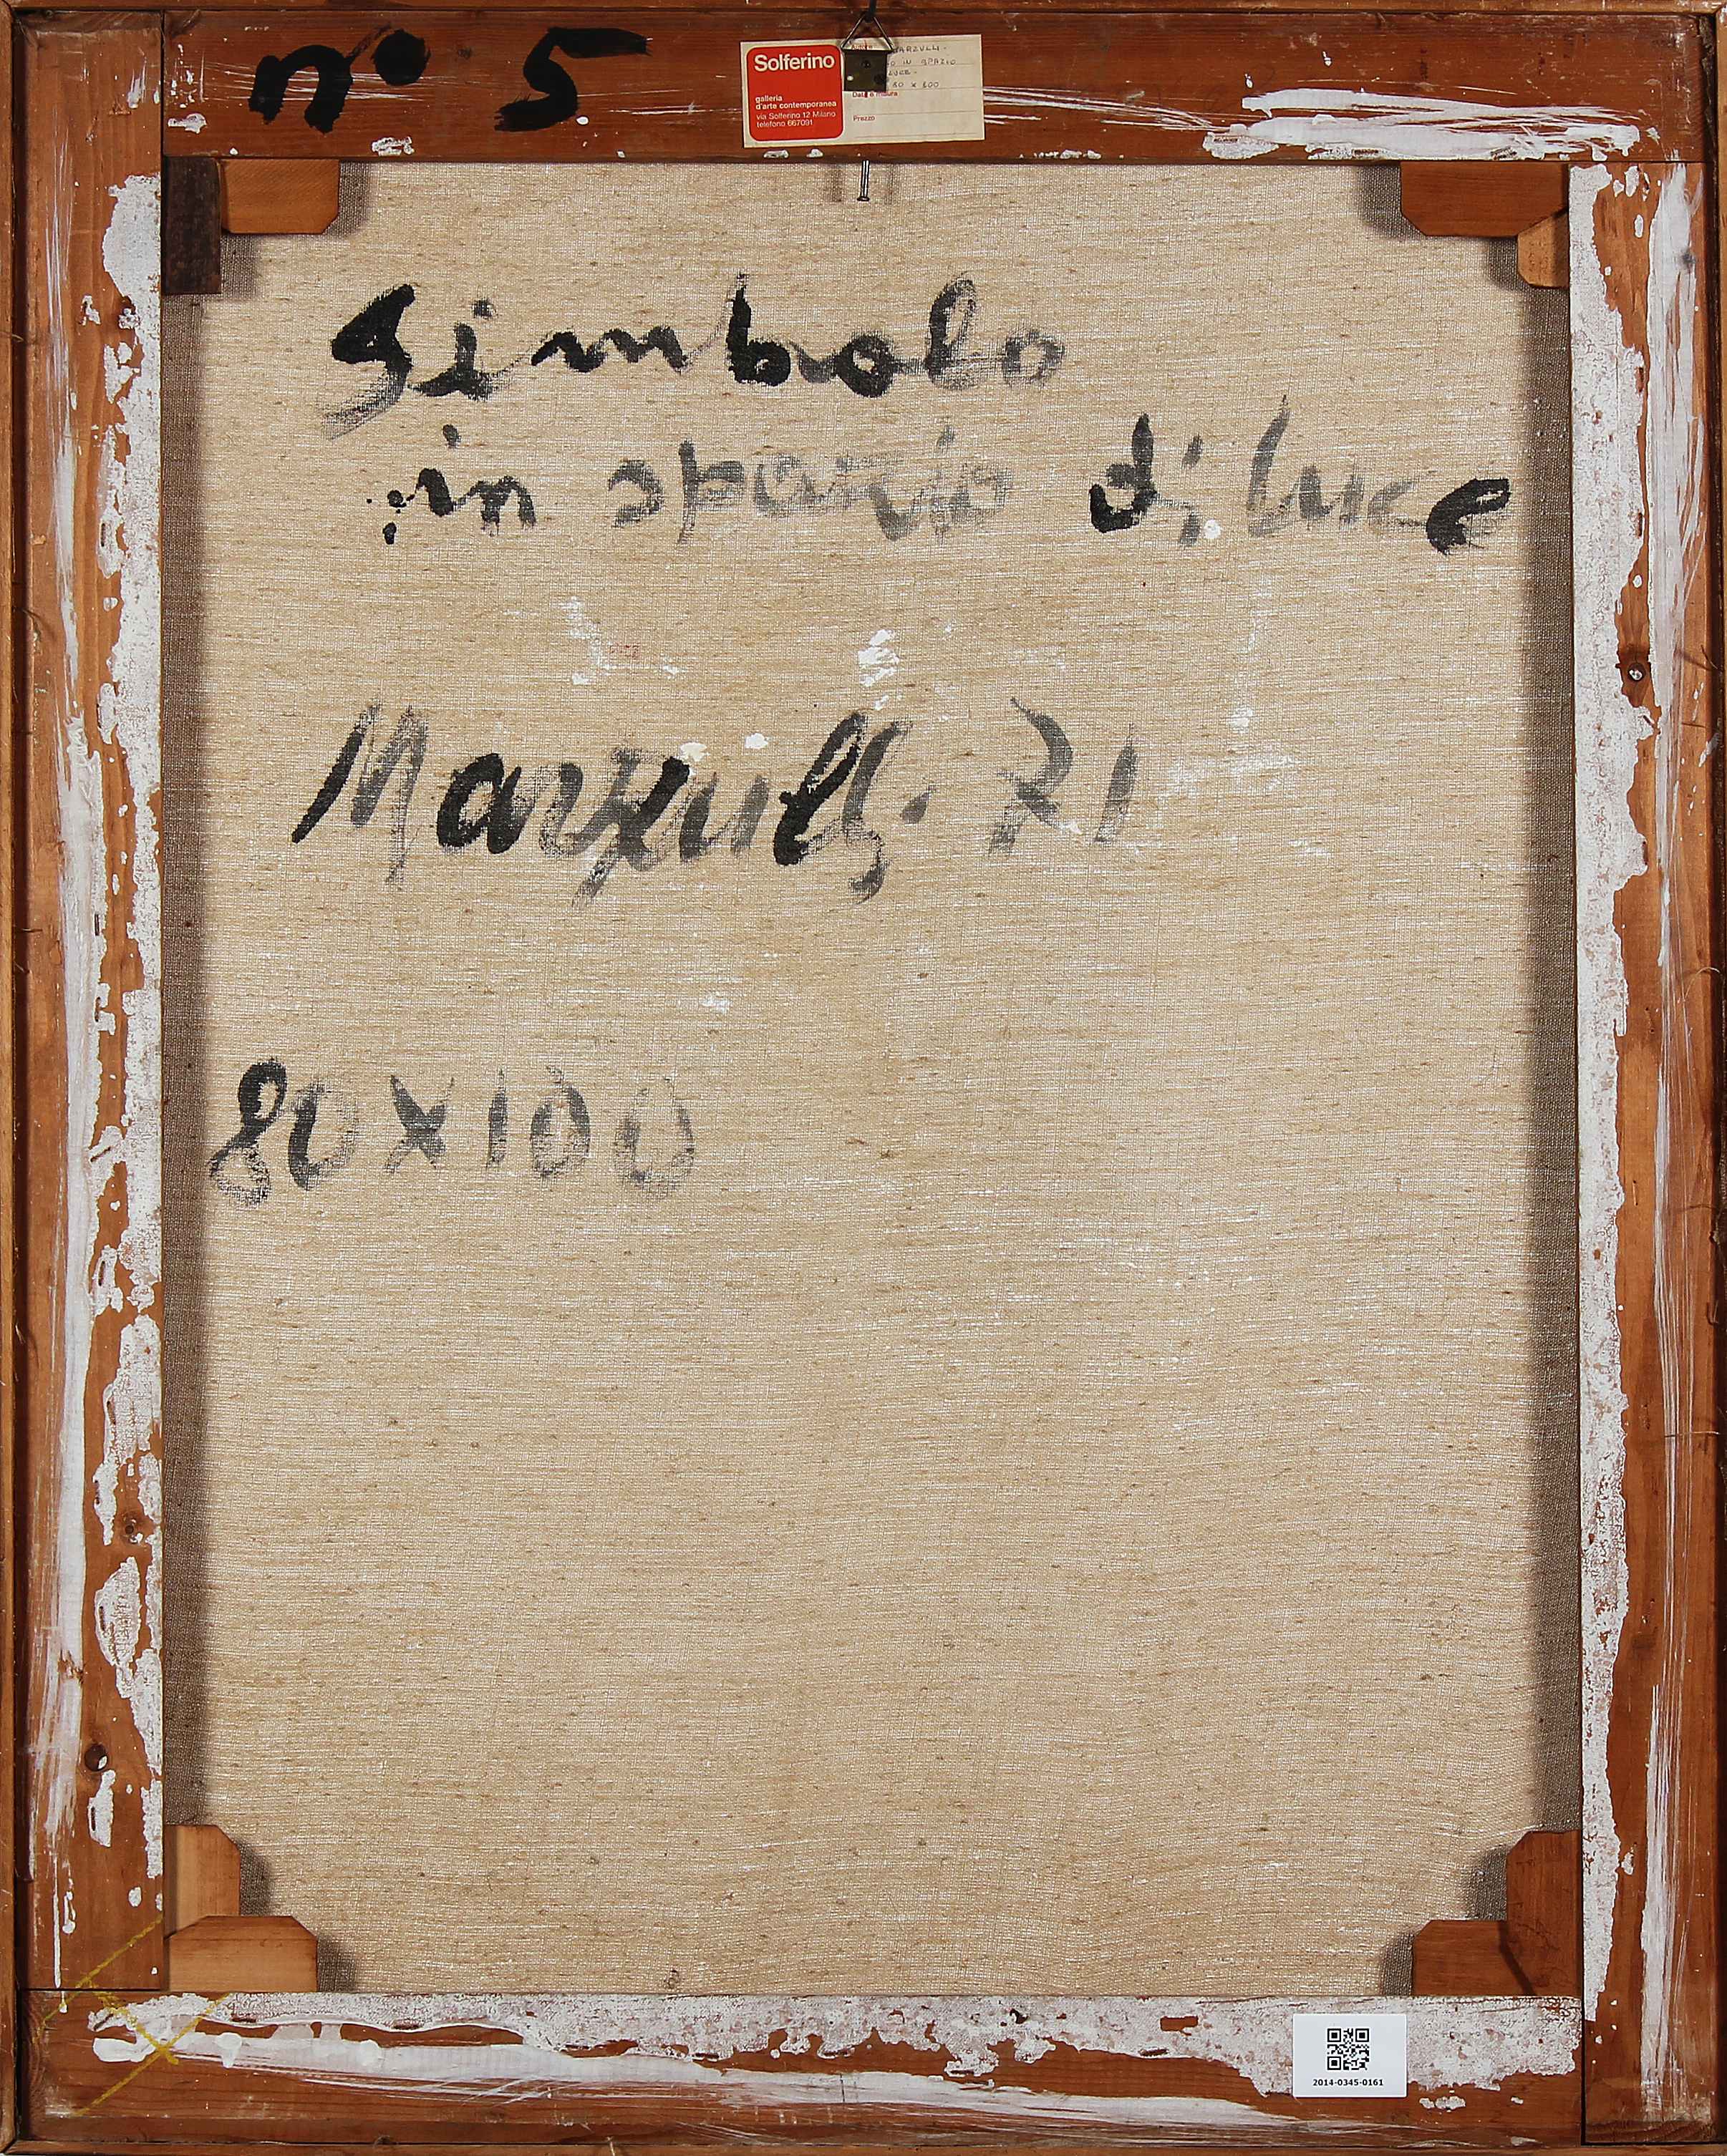 n° 5
Solferino
galleria
d'arte contemporanea
via Solferino 12 Milano
telefono 667091
ARZULLI -
O IN SPAZIO
LUCE -
80 x 100
Data e misura
Prezzo
Simbolo
in spazio di luce
Marzulli. 71
80x100
2014-0345-0161